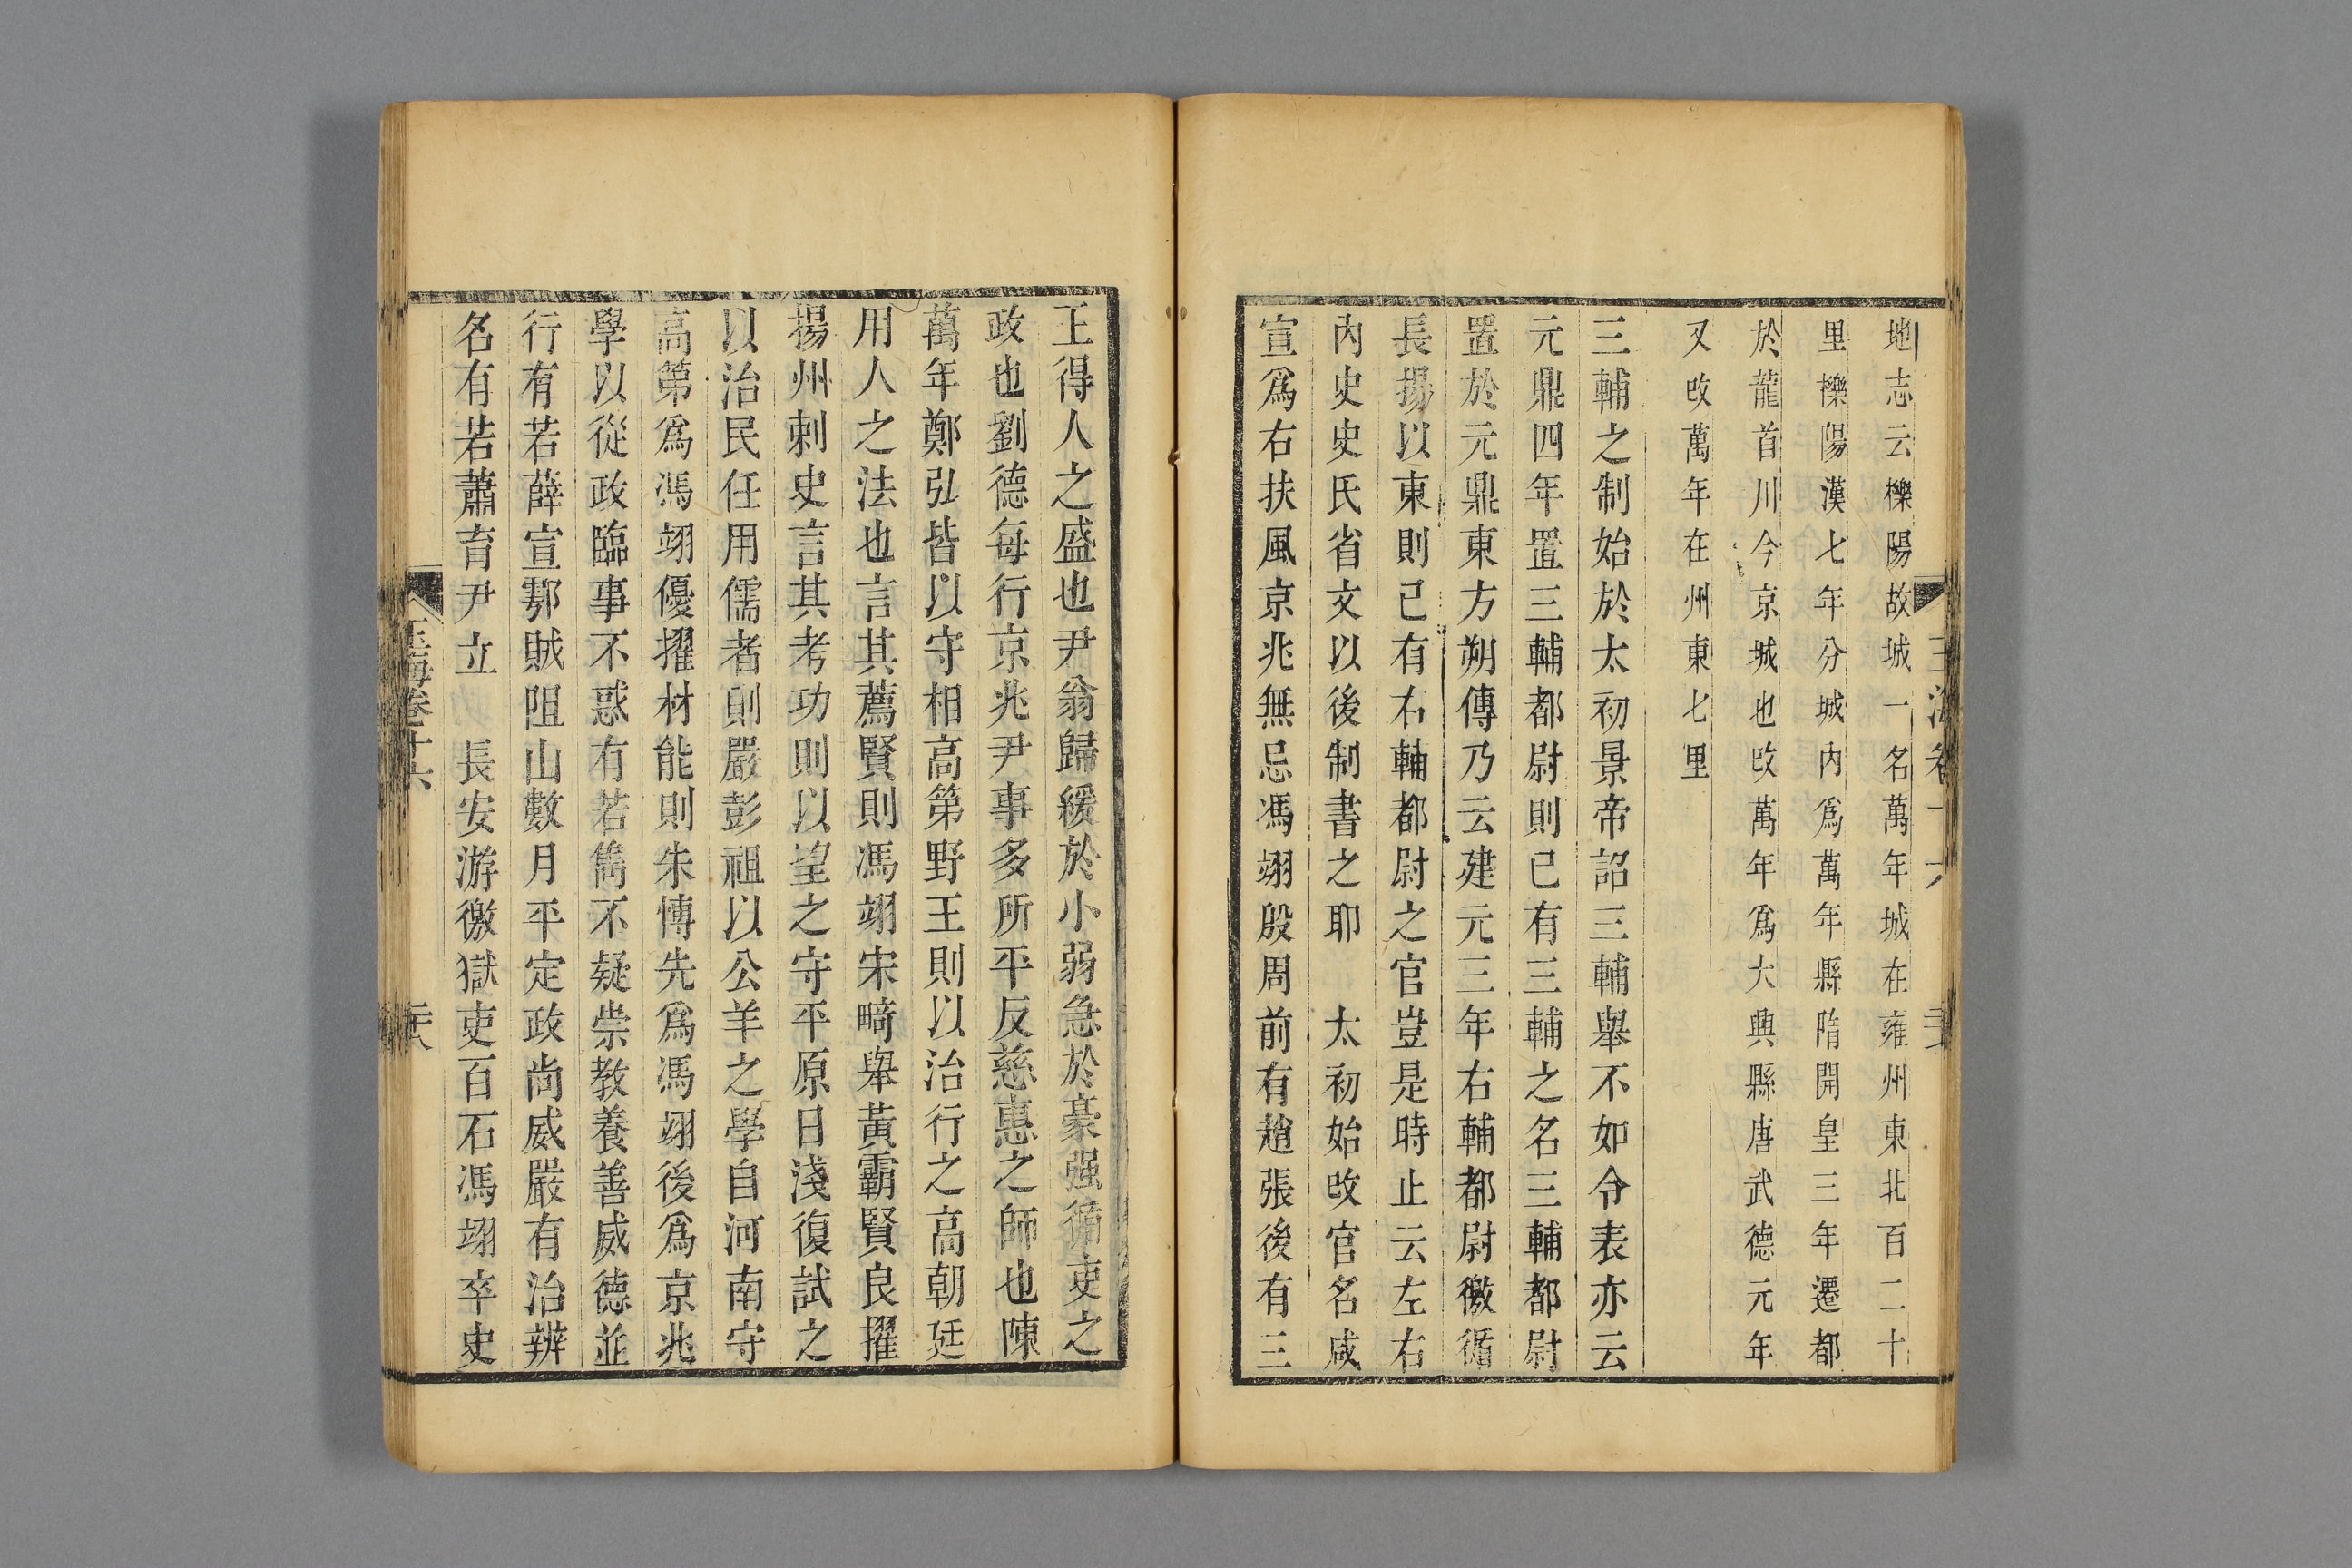 地志云櫟陽故城一名萬年城在雍州東北百二十
里櫟陽漢七年分城內爲萬年縣隋開皇三年遷都
於龍首川今京城也改萬年爲大興縣唐武德元年
又改萬年在州東七里
三輔之制始於太初景帝詔三輔舉不如令表亦云
元鼎四年置三輔都尉則已有三輔之名三輔都尉
置於元鼎東方朔傳乃云建元三年右輔都尉徼循
長揚以東則已有右輔都尉之官豈是時止云左右
內史史氏省文以後制書之耶　太初始改官名咸
宣爲右扶風京兆無忌馮翊殷周前有趙張後有三
王得人之盛也尹翁歸緩於小弱急於豪强循吏之
政也劉德每行京兆尹事多所平反慈惠之師也陳
萬年鄭弘皆以守相高第野王則以治行之高朝廷
用人之法也言其薦賢則馮翊宋畸舉黃霸賢良擢
揚州刺史言其考功則以望之守平原日淺復試之
以治民任用儒者則嚴彭祖以公羊之學自河南守
高第爲馮翊優擢材能則朱愽先爲馮翊後爲京兆
學以從政臨事不惑有若雋不疑崇教養善威德並
行有若薛宣鄠賊阻山數月平定政尚威嚴有治辨
名有若蕭育尹立　長安游徼獄吏百石馮翊卒史
玉海卷十六
二十八